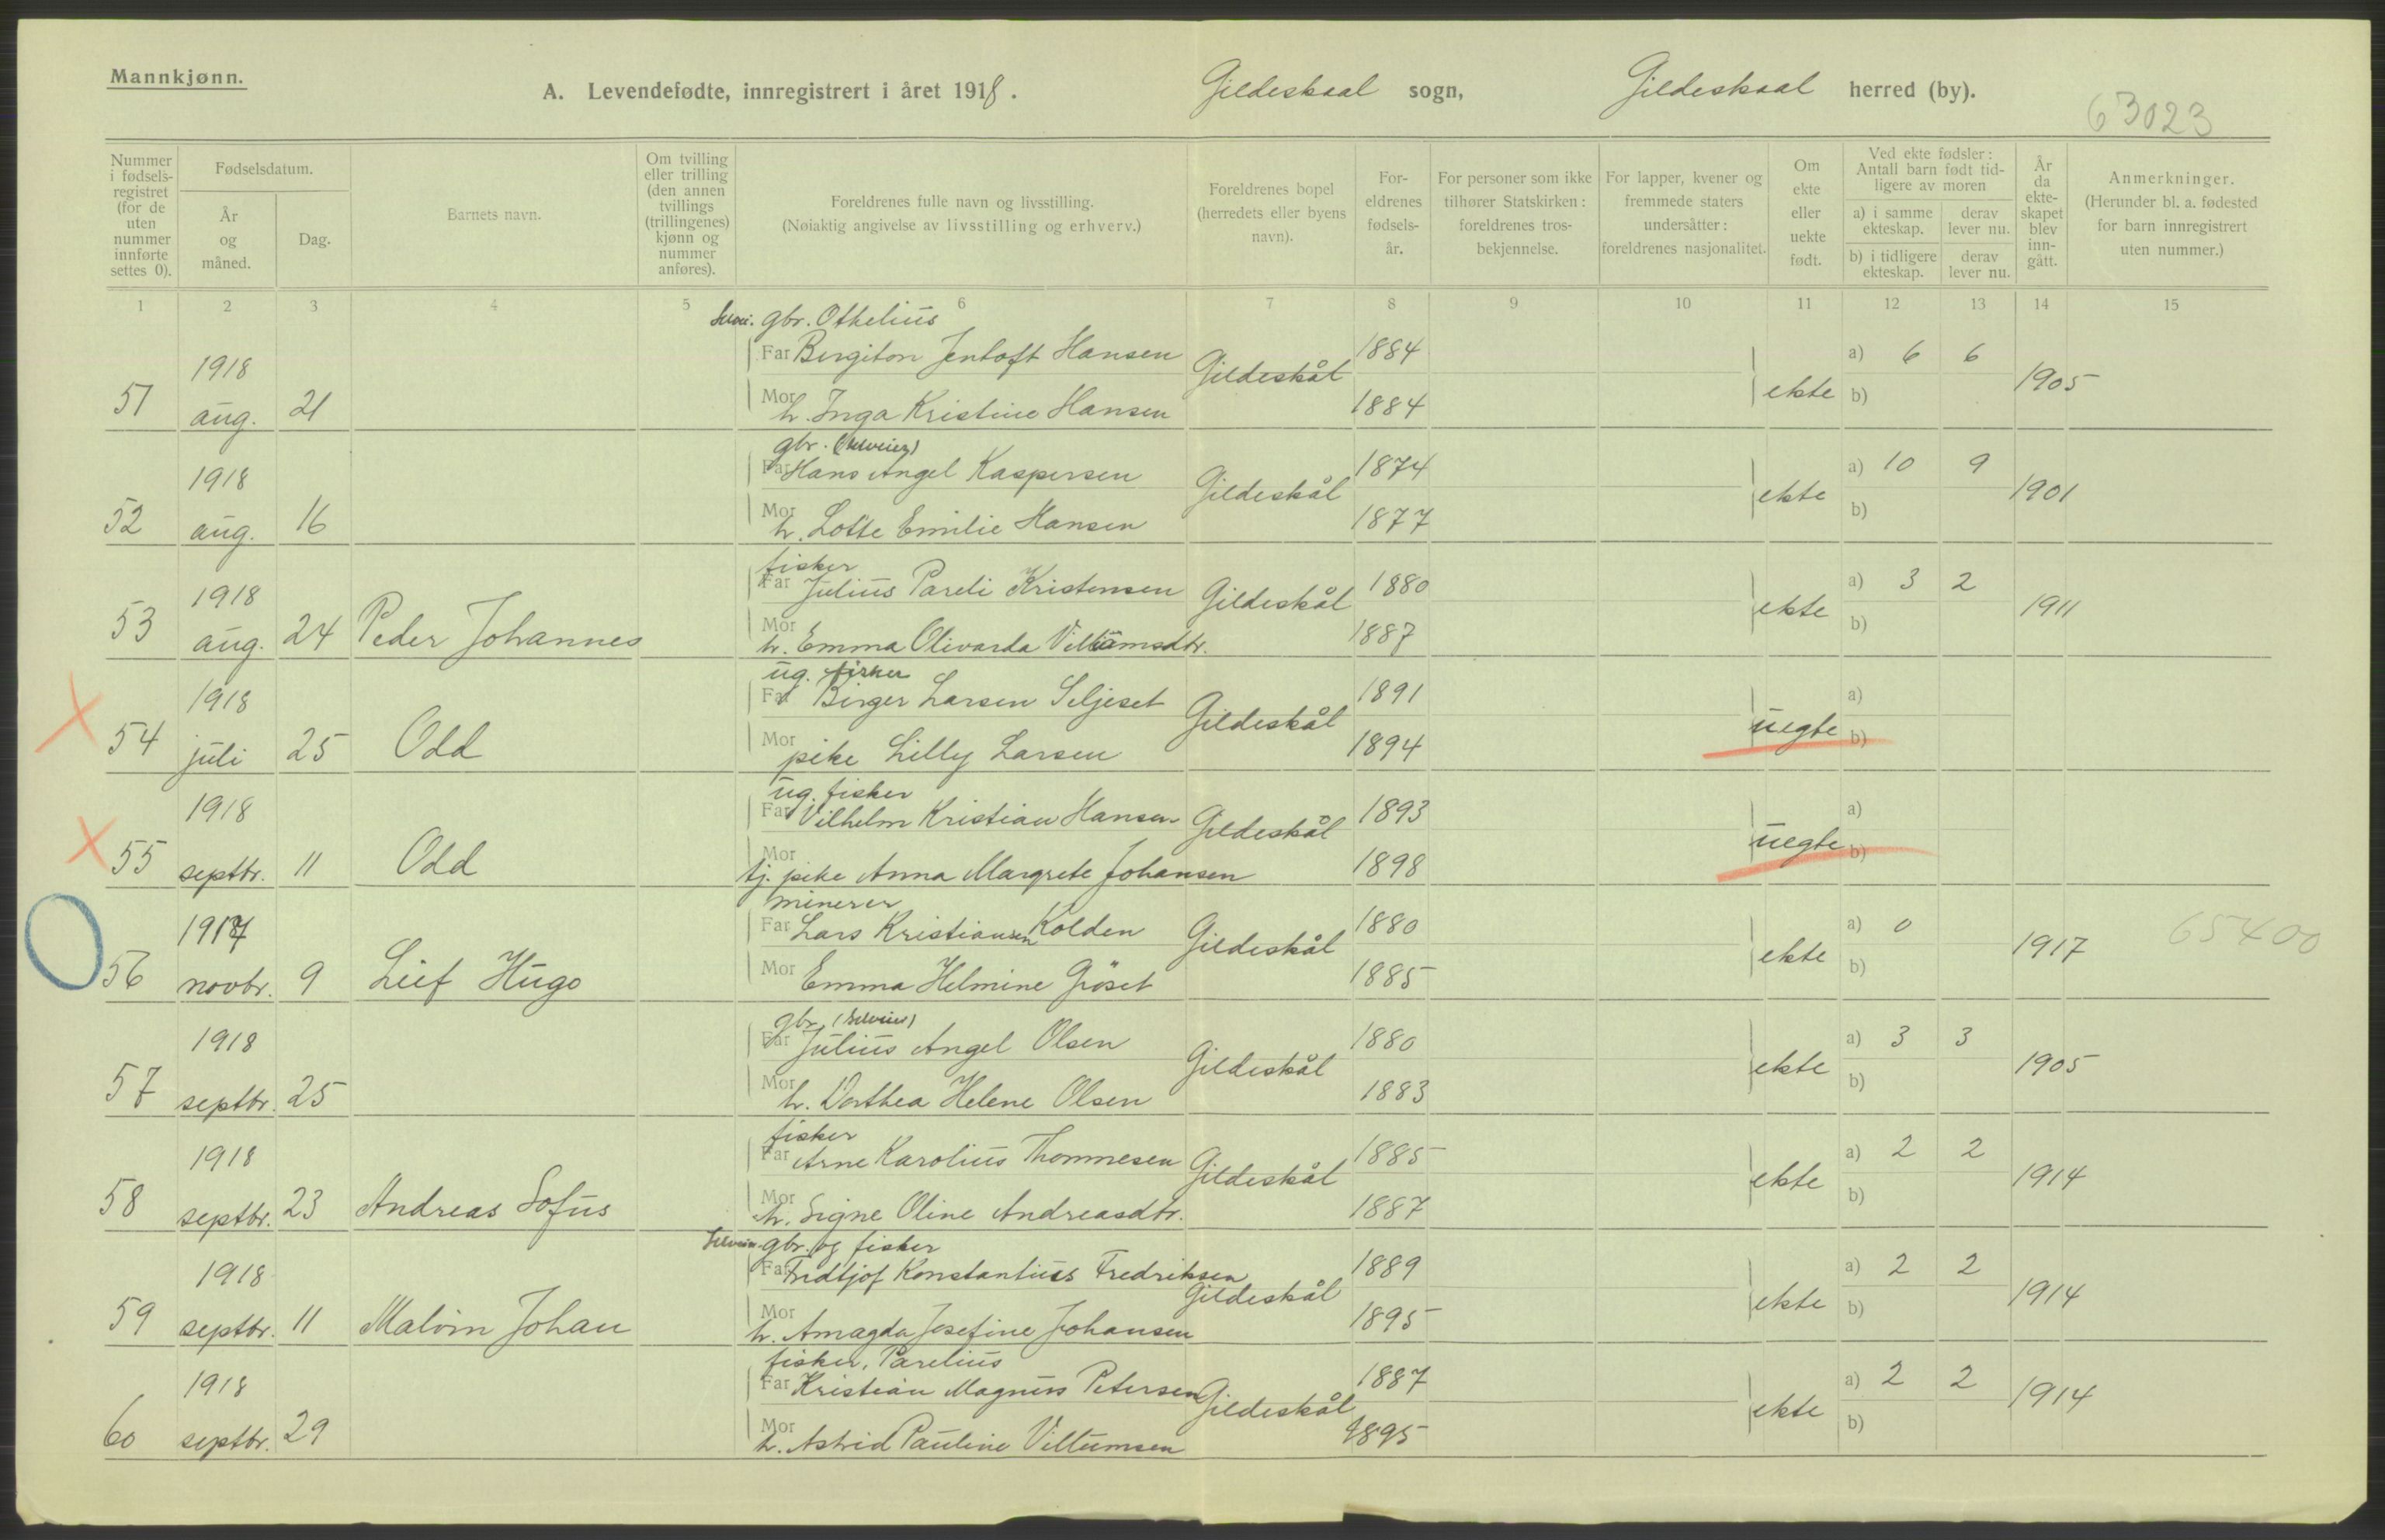 Mannkjønn.
A. Levendefødte, innregistrert i året 1918. Gildeskaal sogn, Gildeskaal herred (by).
63023
Nummer i fødselsregistret (for de uten nummer innførte settes 0).
Fødselsdatum.
År og måned.
Dag.
Barnets navn.
Om tvilling eller trilling (den annen tvillings (trillingenes) kjønn og nummer anføres).
Foreldrenes fulle navn og livsstilling.
(Nøiaktig angivelse av livsstilling og erhverv.)
Foreldrenes bopel (herredets eller byens navn).
Foreldrenes fødselsår.
For personer som ikke tilhører Statskirken: foreldrenes trosbekjennelse.
For lapper, kvener og fremmede staters undersåtter: foreldrenes nasjonalitet.
Om ekte eller uekte født.
Ved ekte fødsler: Antall barn født tidligere av moren
a) i samme ekteskap. derav lever nu.
b) i tidligere ekteskap. derav lever nu.
År da ekteskapet blev inngått.
Anmerkninger.
(Herunder bl. a. fødested for barn innregistrert uten nummer.)
1 2 3 4 5 6 7 8 9 10 11 12 13 14 15
gbr. Othelius
1918 Far Bergiton Jentoft Hansen Gildeskål 1884 a) 6 6
51 aug. 21 Mor h. Inga Kristine Hansen 1884 ekte b) 1905
gbr. (selveier)
1918 Far Hans Angel Kaspersen Gildeskål 1874 a) 10 9
52 aug. 16 Mor h. Lotte Emilie Hansen 1877 ekte b) 1901
fisker
1918 Far Julius Pareli Kristensen Gildeskål 1880 a) 3 2
53 aug. 24 Peder Johannes Mor h. Emma Olivarda 1887 ekte b) 1911
ug. fisker
1918 Far Birger Larsen Seljeset Gildeskål 1891 a)
54 juli 25 Odd Mor pike Lilly Larsen 1894 uegte b)
ug. fisker
1918 Far Vilhelm Kristian Hansen Gildeskål 1893 a)
55 septbr. 11 Odd Mor tj. pike Anna Margrete Johansen 1898 uegte b)
minerer
1917 Far Lars Kristiansen Kolden Gildeskål 1880 a) 0 65400
56 novbr. 9 Leif Hugo Mor Emma Helmine Grøset 1885 ekte b) 1917
gbr. (selveier)
1918 Far Julius Angel Olsen Gildeskål 1880 a) 3 3
57 septbr. 25 Mor h. Dorthea Helene Olsen 1883 ekte b) 1905
fisker
1918 Far Arne Karolius Thommesen Gildeskål 1885 a) 2 2
58 septbr. 23 Andreas Sofus Mor h. Signe Oline Andreasdtr. 1887 ekte b) 1914
gbr. og fisker
1918 Far Fridtjof Konstantius Fredriksen Gildeskål 1889 a) 2 2
59 septbr. 11 Malvin Johan Mor h. Amagda Josefine Johansen 1895 ekte b) 1914
fisker, Parelius
1918 Far Kristian Magnus Petersen Gildeskål 1887 a) 2 2
60 septbr. 29 Mor h. Astrid Pauline Viltumsen 1895 ekte b) 1914